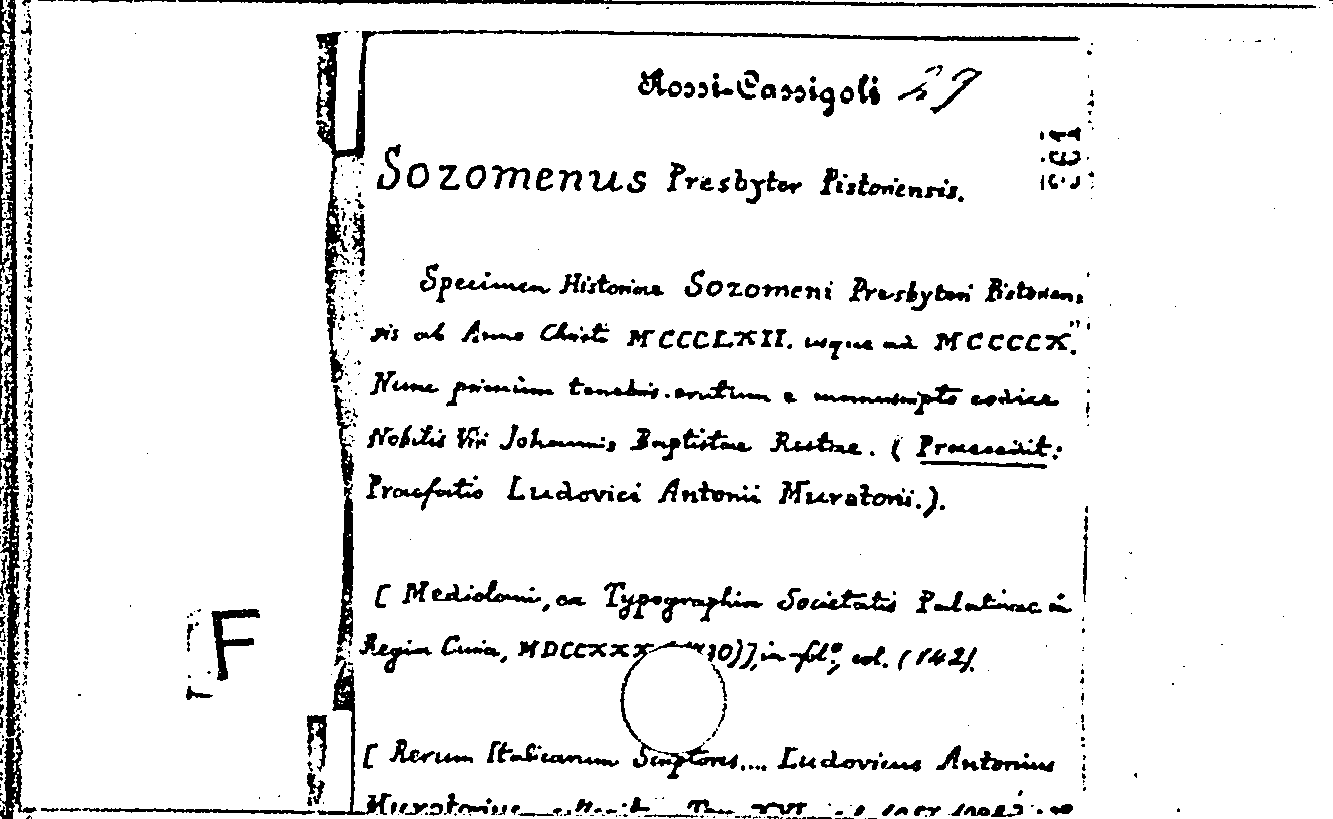 Rossi-Cassigoli 29
Sozomenus Presbyter Pistoriensis.
Specimen Historiae Sozomeni Presbyteri Pistorien-
sis ab Anno Christi MCCCLXII. usque ad MCCCCX."
Nunc primum tenebris erutum e manuscripto codice
Nobilis Viri Johannis Baptistae Rectae. (Praecedit:
Praefatio Ludovici Antonii Muratorii.).
[Mediolani, ex Typographia Societatis Palatinae in
Regia Curia, MDCCXXX 30)], in-fol°, col. (142).
F
[Rerum Italicarum Scriptores.... Ludovicus Antonius
Muratorius Tom. XVI